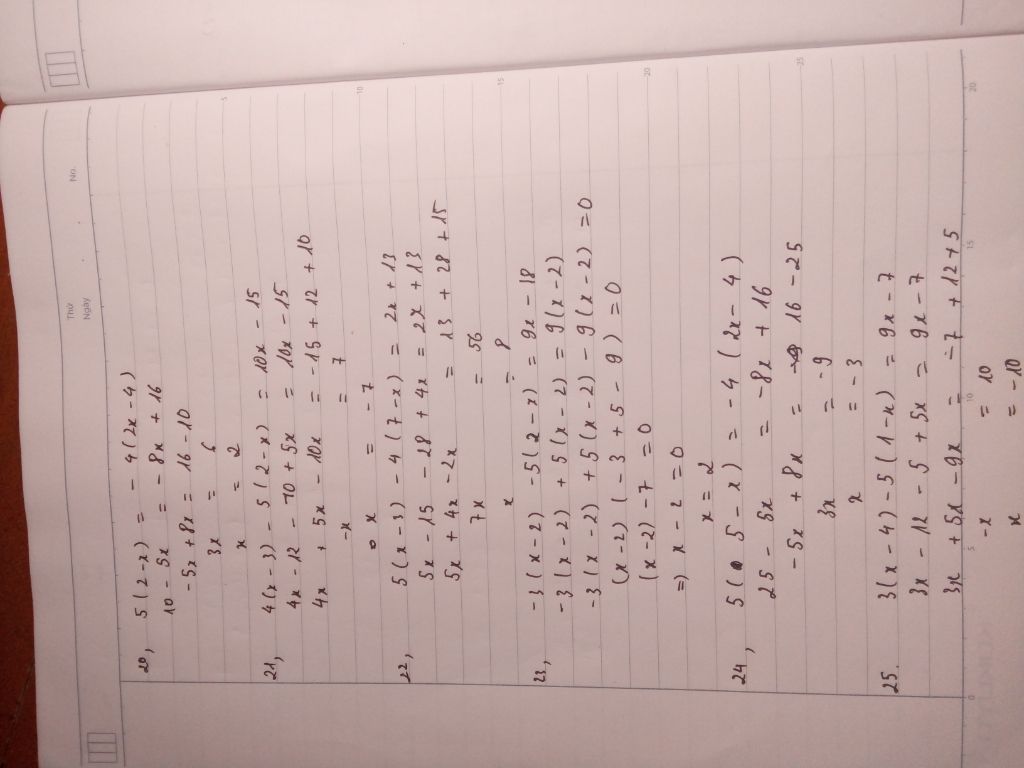 Thứ
Ngày
No.
20, 5(2-x) = -4(2x-4)
10 - 5x = - 8x + 16
-5x + 8x = 16 - 10
3x = 6
x = 2
21, 4(x-3) - 5(2-x) = 10x - 15
4x - 12 - 10 + 5x = 10x - 15
4x + 5x - 10x = -15 + 12 + 10
-x = 7
x = -7
22, 5(x-3) - 4(7-x) = 2x + 13
5x - 15 - 28 + 4x = 2x + 13
5x + 4x - 2x = 13 + 28 + 15
7x = 56
x = 8
23, -3(x-2) - 5(2-x) = 9x - 18
-3(x-2) + 5(x-2) = 9(x-2)
-3(x-2) + 5(x-2) - 9(x-2) = 0
(x-2)(-3 + 5 - 9) = 0
(x-2) -7 = 0
=) x - 2 = 0
x = 2
24, 5(5-x) = -4(2x-4)
25 - 5x = -8x + 16
-5x + 8x = 16 - 25
3x = -9
x = -3
25. 3(x-4) - 5(1-x) = 9x - 7
3x - 12 - 5 + 5x = 9x - 7
3x + 5x - 9x = -7 + 12 + 5
-x = 10
x = -10
5
10
15
20
25
0
5
10
15
20